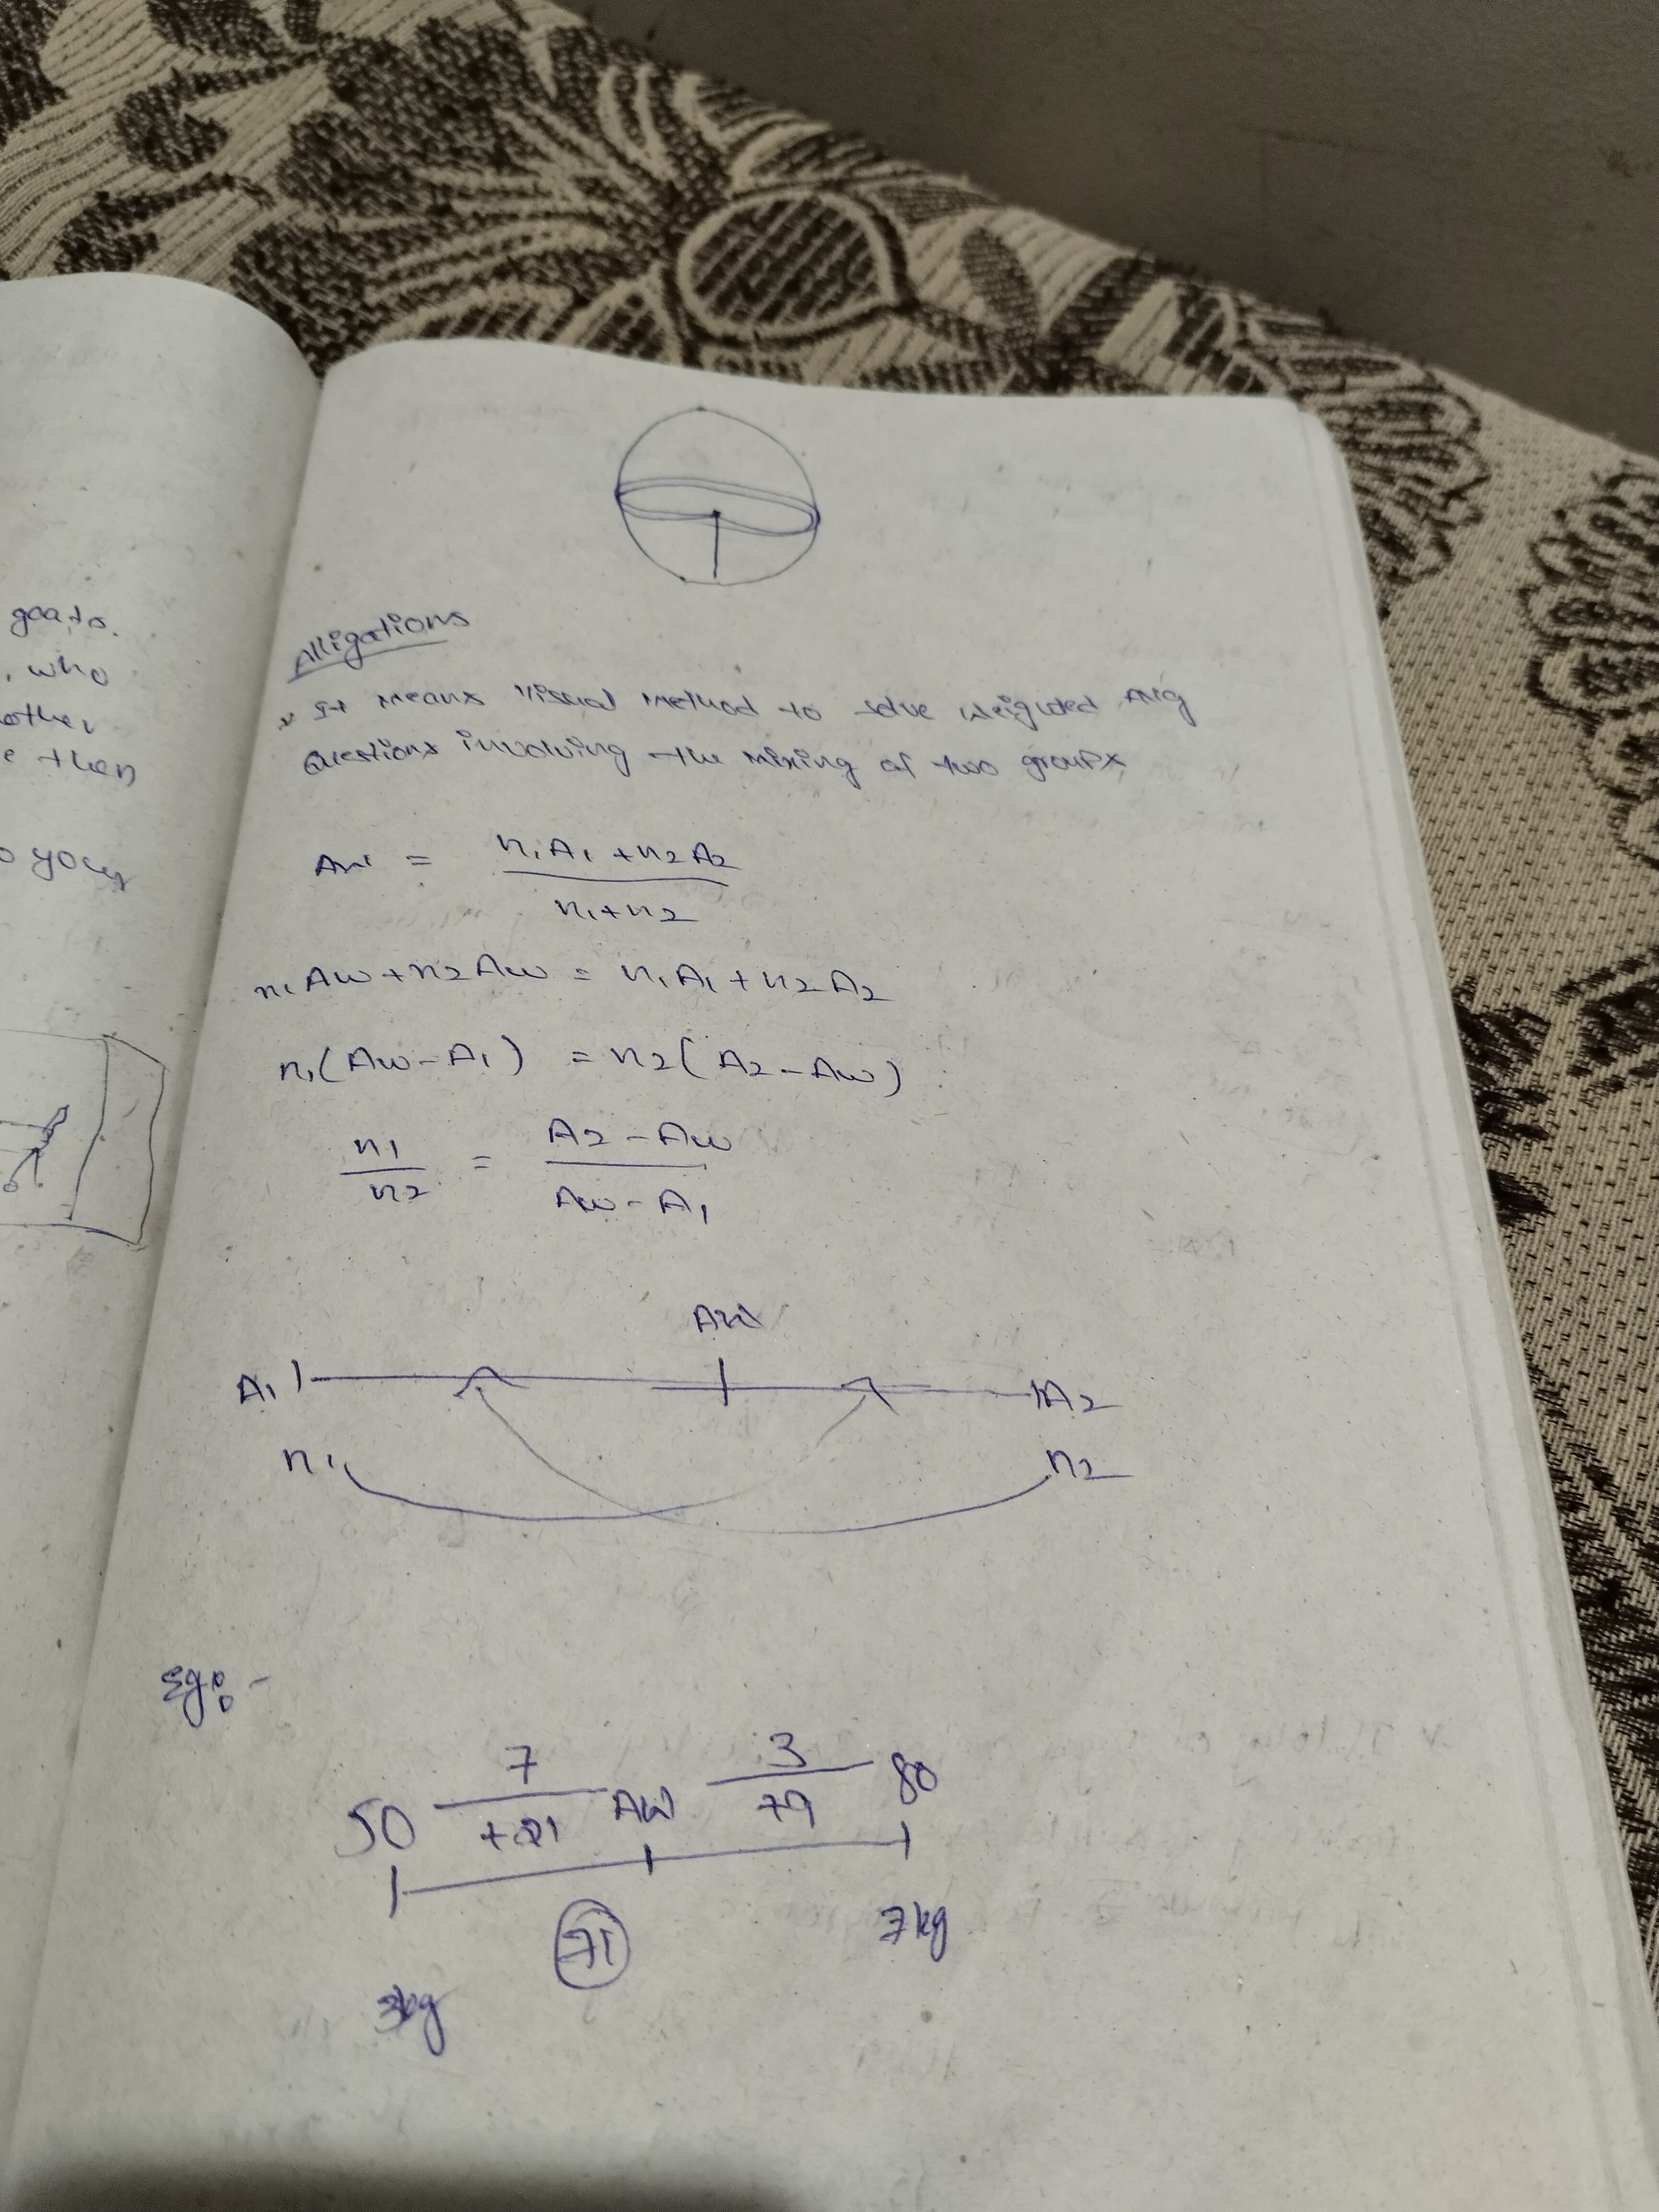 goats.
, who
other
e then
o your
Alligations
It means Visual method to solve weighted Avg
Questions involving the mixing of two groups
Aw = n1A1 + n2A2 / n1+n2
n1Aw + n2Aw = n1A1 + n2A2
n1(Aw - A1) = n2(A2 - Aw)
n1/n2 = A2 - Aw / Aw - A1
Aw
A1 A2
n1 n2
Eg:-
7 3
50 Aw 80
+21 +9
71 7kg
3kg